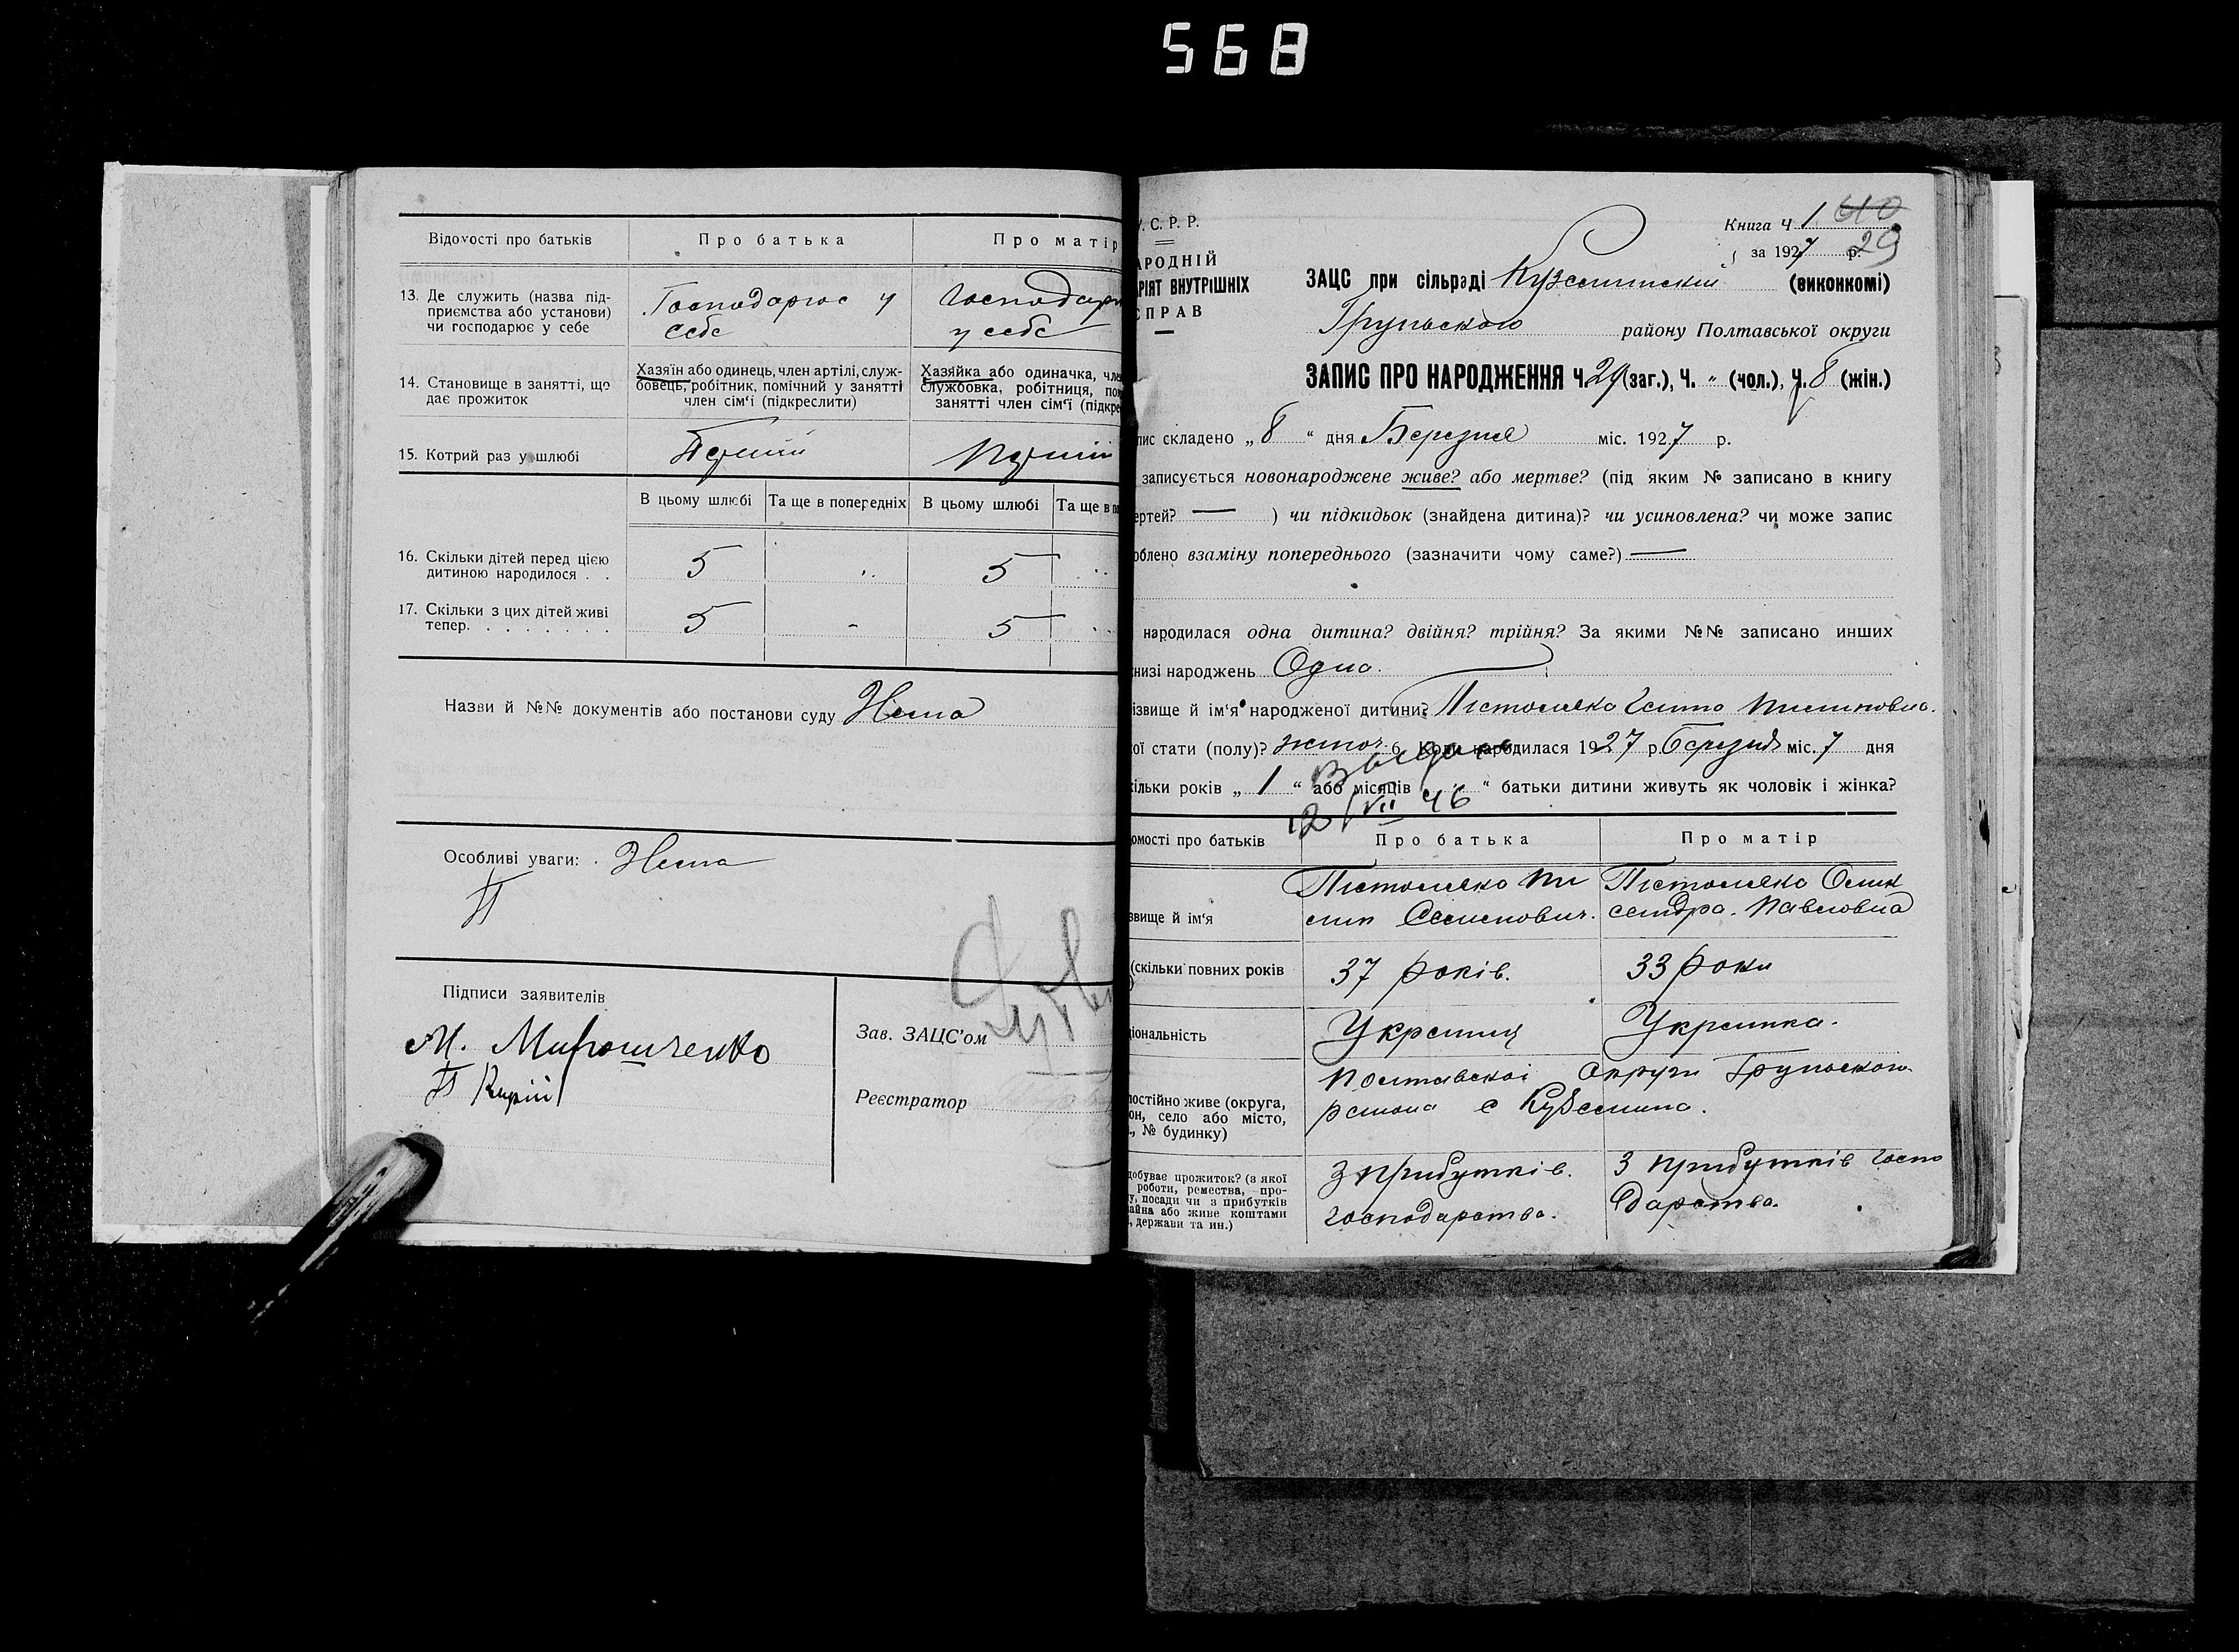 568
Відомості про батьків
Про батька
Про матір
13. Де служить (назва під-
приємства або установи)
чи господарює у себе
Господарює у
себе
Господарює
у себе
14. Становище в занятті, що
дає прожиток
Хазяїн або одинець, член артілі, служ-
бовець, робітник, помічний у занятті
член сім'ї (підкреслити)
Хазяйка або одиначка, чле
службовка, робітниця, по
занятті член сім'ї (підкре
15. Котрий раз у шлюбі
Перший
Перший
В цьому шлюбі
Та ще в попередніх
В цьому шлюбі
Та ще в по
16. Скільки дітей перед цією
дитиною народилося . .
5
5
17. Скільки з цих дітей живі
тепер. . . . . . . .
5
-
5
Назви й №№ документів або постанови суду Нема
Особливі уваги: Нема
П
Підписи заявителів
М. Мирошченко
П Кирій
Зав. ЗАЦС'ом
Реєстратор
У. С. Р. Р.
АРОДНІЙ
АРІЯТ ВНУТРІШНІХ
СПРАВ
Книга Ч 1 40
за 1927 р. 29
ЗАЦС при сільраді (виконкомі)
Грунського району Полтавської округи
ЗАПИС ПРО НАРОДЖЕННЯ Ч. 29 (заг.), Ч. " (чол.), Ч. 8 (жін.)
пис складено „ 8 “ дня Березня міс. 1927 р.
записується новонароджене живе? або мертве? (під яким № записано в книгу
ертей? — ) чи підкидьок (знайдена дитина)? чи усиновлена? чи може запис
облено взаміну попереднього (зазначити чому саме?) —
народилася одна дитина? двійня? трійня? За якими №№ записано инших
низі народжень Одна.
ізвище й ім'я народженої дитини? Пилиповна.
ої стати (полу)? жіноч. 6. Коли народилася 1927 р. березня міс. 7 дня
Выдано
кільки років „ 1 “ або місяців „ “ батьки дитини живуть як чоловік і жінка?
12/VII 46
омості про батьків
Про батька
Про матір
звище й ім'я
Пи
лип Семенович.
Олек
сандра. Павловна
(скільки повних років
)
37 років.
33 роки
ціональність
Украинц
Украинка.
постійно живе (округа,
он, село або місто,
., № будинку)
Полтавскоі Округи Грунського
района с
добуває прожиток? (з якої
роботи, ремества, про-
у, посади чи з прибутків
айна або живе коштами
, держави та ин.)
З прибутків.
господарства.
З прибутків госпо
дарства.